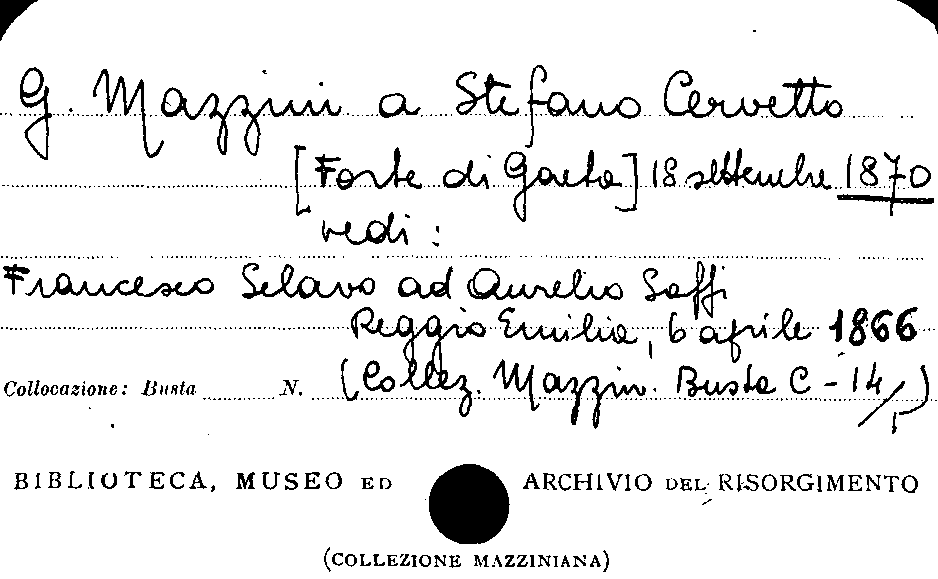 G. Mazzini a Stefano Cervetto
[Forte di Gaeta] 18 settembre 1870
vedi:
Francesco Selavo ad Aurelio Saffi
Reggio Emilia, 6 aprile 1866
Collocazione: Busta N. (Collez. Mazzin. Busta C - 14/5)
BIBLIOTECA, MUSEO ED ARCHIVIO DEL RISORGIMENTO
(COLLEZIONE MAZZINIANA)